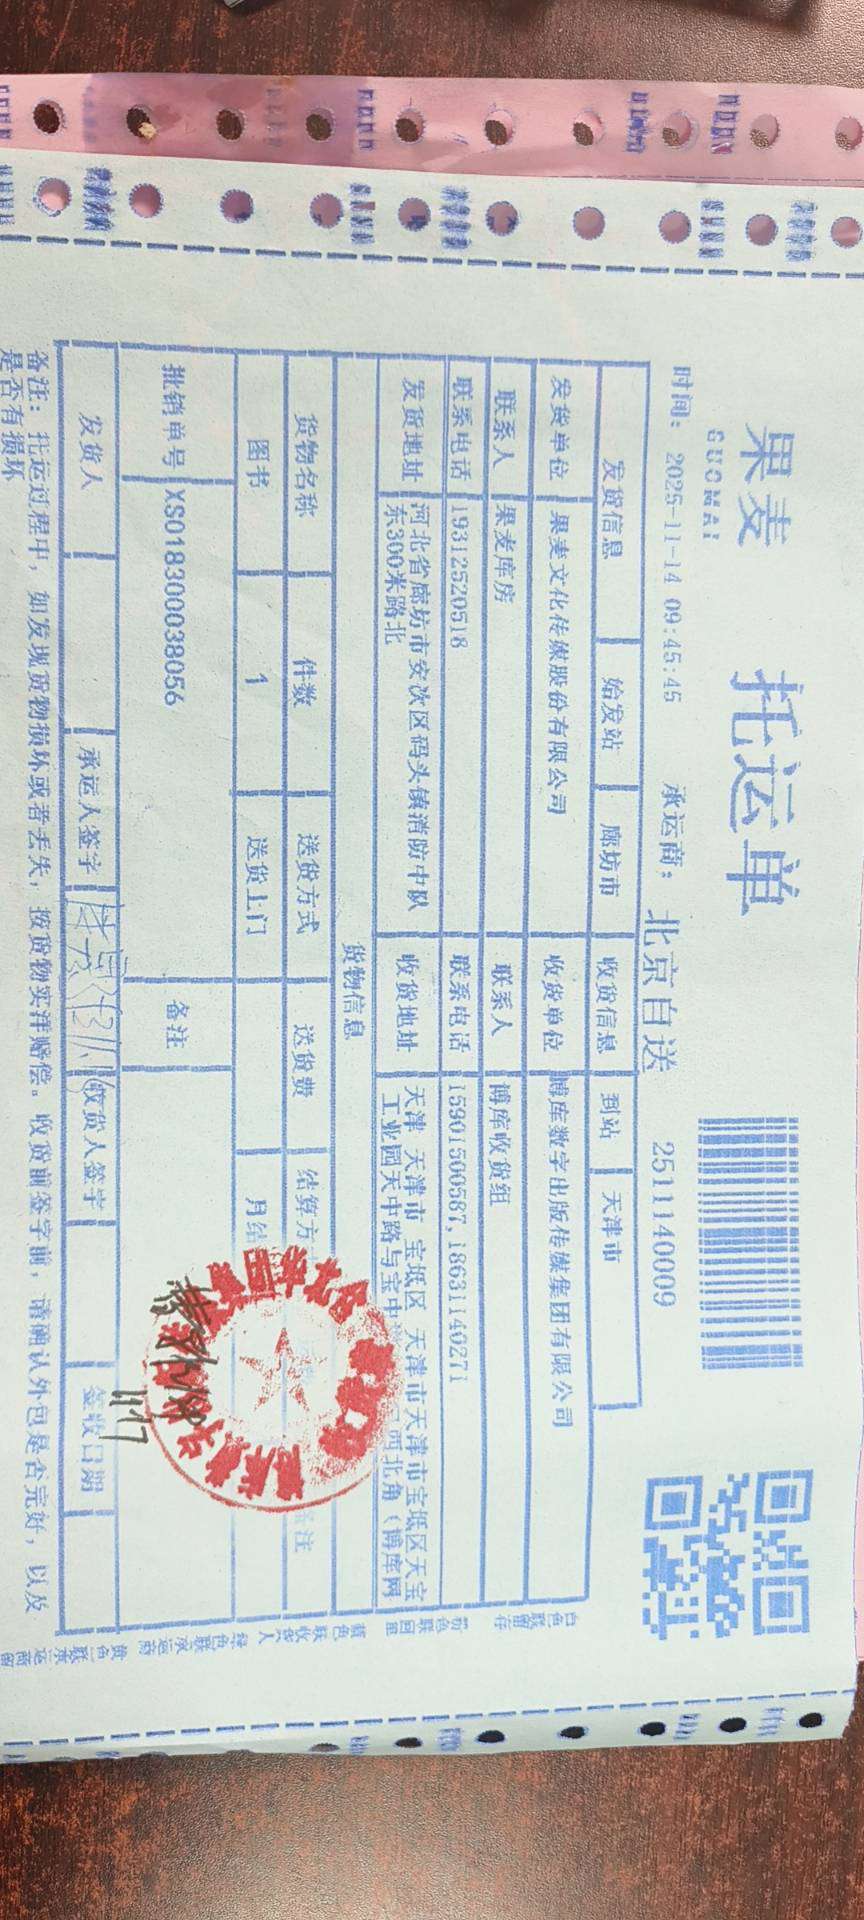 果麦
GUOMAI
托运单
时间: 2025-11-14 09:45:45 承运商: 北京自送 2511140009
发货信息 始发站 廊坊市 收货信息 到站 天津市
发货单位 果麦文化传媒股份有限公司 收货单位 博库数字出版传媒集团有限公司
联系人 果麦库房 联系人 博库收货组
联系电话 19312520518 联系电话 15901500587,18631140271
发货地址 河北省廊坊市安次区码头镇消防中队 收货地址 天津 天津市 宝坻区 天津市天津市宝坻区天宝
东300米路北 工业园天中路与宝中 西北角(博库网
货物信息
货物名称 件数 送货方式 送货费 结算方 备注
图书 1 送货上门 月结
批销单号 XS018300038056 备注
发货人 承运人签字 收货人签字 签收日期
11.17
备注: 托运过程中, 如发现货物损坏或者丢失, 按货物实洋赔偿。收货前签字前, 请确认外包是否完好, 以及
是否有损坏
白色联留存
粉色联回单
蓝色联收货人
绿色联承运商
黄色联承运商留